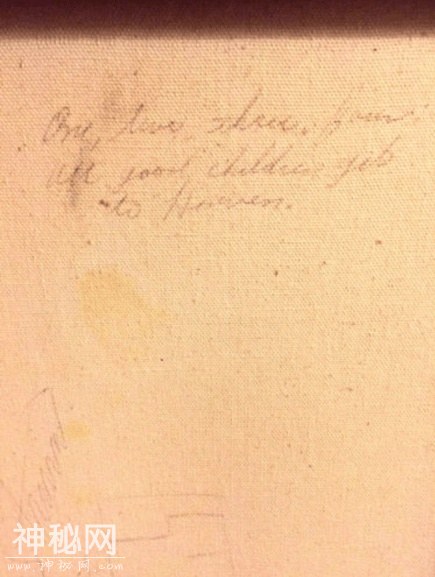 One, two, three, four
All good children go
to Heaven.
神秘网
www.神秘网.com